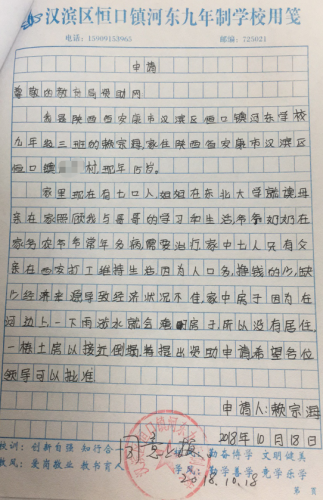 汉滨区恒口镇河东九年制学校用笺
电话：15909153965 邮编：725021
申请
尊敬的教育局资助网
我是陕西西安康市汉滨区恒口镇河东学校
九年级三班的赖宗海,家住陕西省安康市汉滨区
恒口镇 村,现年15岁。
家里现在有七口人,姐姐在东北大学就读,母
亲在家照顾我与哥哥的学习和生活,爷爷奶奶在
家务农,爷爷常年多病,需要治疗,家中七人只有父
亲在西安打工维持生活,因为人口多,挣钱的少,缺
少经济来源导致经济状况不佳,家中房子因为在
河边上一下雨涨水就会淹 房子,所以没有居住,
一栋土房以接近倒塌,特提出资助申请希望各位
领导可以批准
申请人:赖宗海
2018年10月18日
校训：创新自强 知行合一 勤奋博学 文明健美
教风：爱岗敬业 教书育人 学风：勤学善学 竞学乐学
2018.10.18
第 页